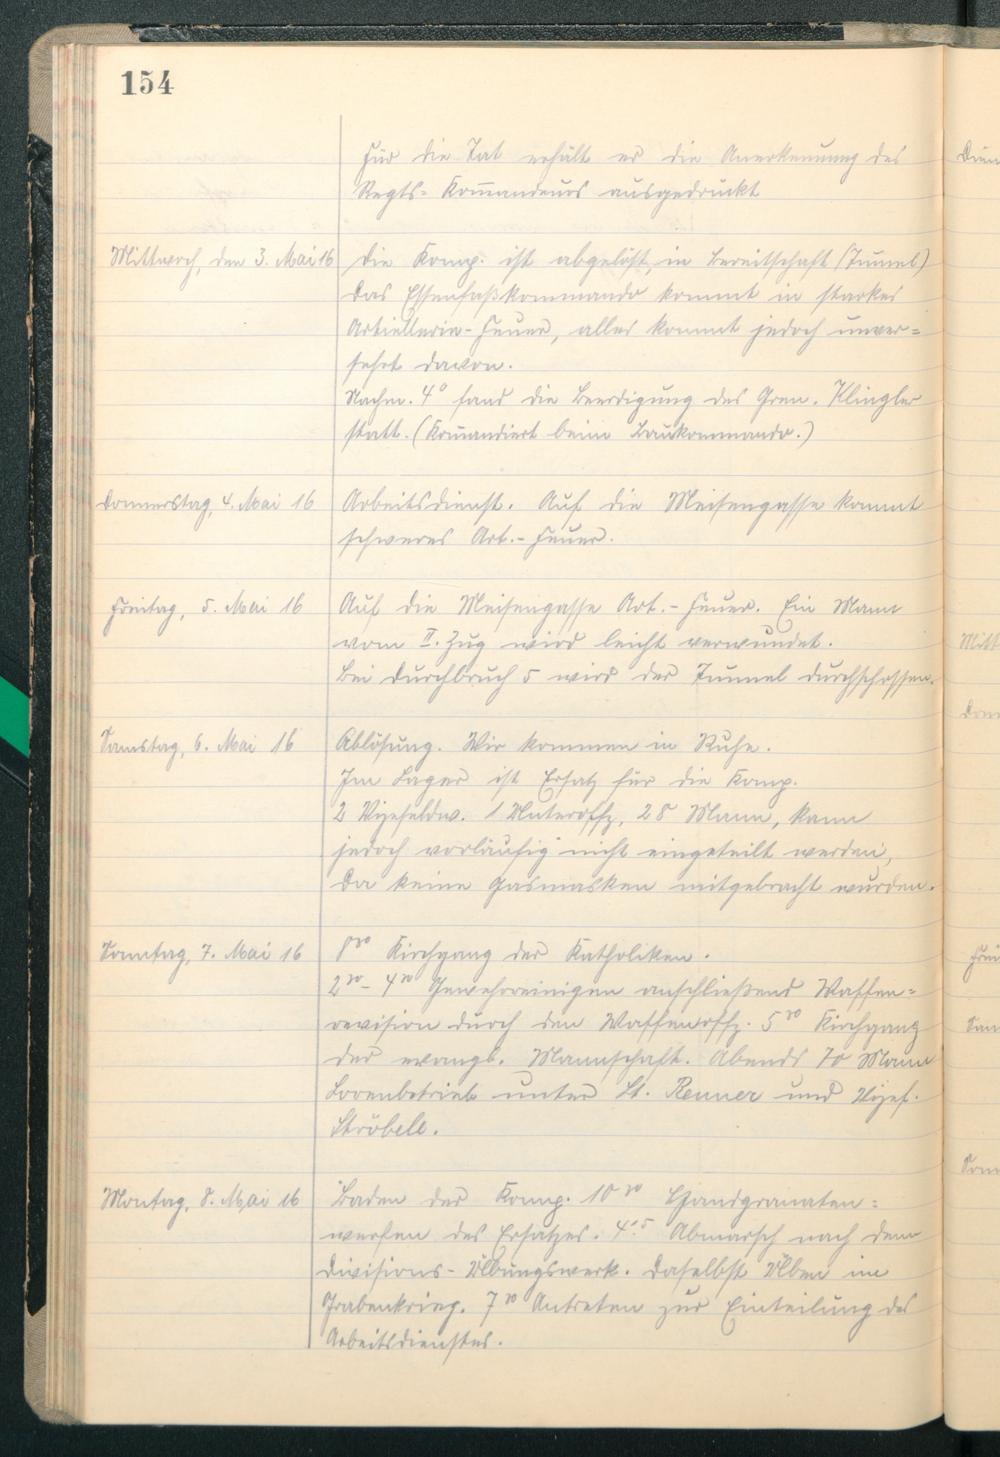 154
Für die Tat erhält er die Anerkennung des
Regts= Kom̄andeurs ausgedrückt
Mittwoch, den 3. Mai 16
Die Komp. ist abgelöst, in Bereitschaft (Tunnel)
Das Essenfaßkommando kommt in starkes
Artiellerie-Feuer, alles kommt jedoch unver=
sehrt davon.
Nachm. 4⁰ fand die Beerdigung des Gren. Klingler
statt. (Kom̄andiert beim Baukommando.)
Donnerstag, 4. Mai 16
Arbeitsdienst. Auf die Meisengasse kommt
schweres Art.-Feuer.
Freitag, 5. Mai 16
Auf die Meisengasse Art.-Feuer. Ein Mann
vom II. Zug wird leicht verwundet.
Bei Durchbruch 5 wird der Tunnel durchschossen.
Samstag, 6. Mai 16
Ablösung. Wir kommen in Ruhe.
Im Lager ist Ersatz für die Komp.
2 Vizefeldw. 1 Unteroffz, 28 Mann, kann
jedoch vorläufig nicht eingeteilt werden,
da keine Gasmasken mitgebracht wurden.
Sonntag, 7. Mai 16
8³⁰ Kirchgang der Katholiken.
2³⁰- 4³⁰ Gewehrreinigen anschließend Waffen=
revision durch den Waffenoffz. 5³⁰ Kirchgang
der evangl. Mannschaft. Abends 70 Mann
Lorenbetrieb unter Lt. Renner und Vizef.
Ströbele.
Montag, 8. Mai 16
Baden der Komp. 10³⁰ Handgranaten=
werfen des Ersatzes. Abmarsch nach dem
Divisions-Übungswerk. Daselbst Üben im
Grabenkrieg. 7³⁰ Antreten zur Einteilung des
Arbeitsdienstes.